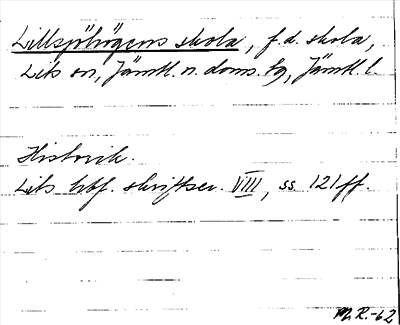 Lillsjöhögens skola, f.d. skola,
Lits sn, Jämtl. n. doms. lg, Jämtl. l.
Historik.
Lits hbf. skriftser. VIII, ss. 121 ff.
M.R.-62